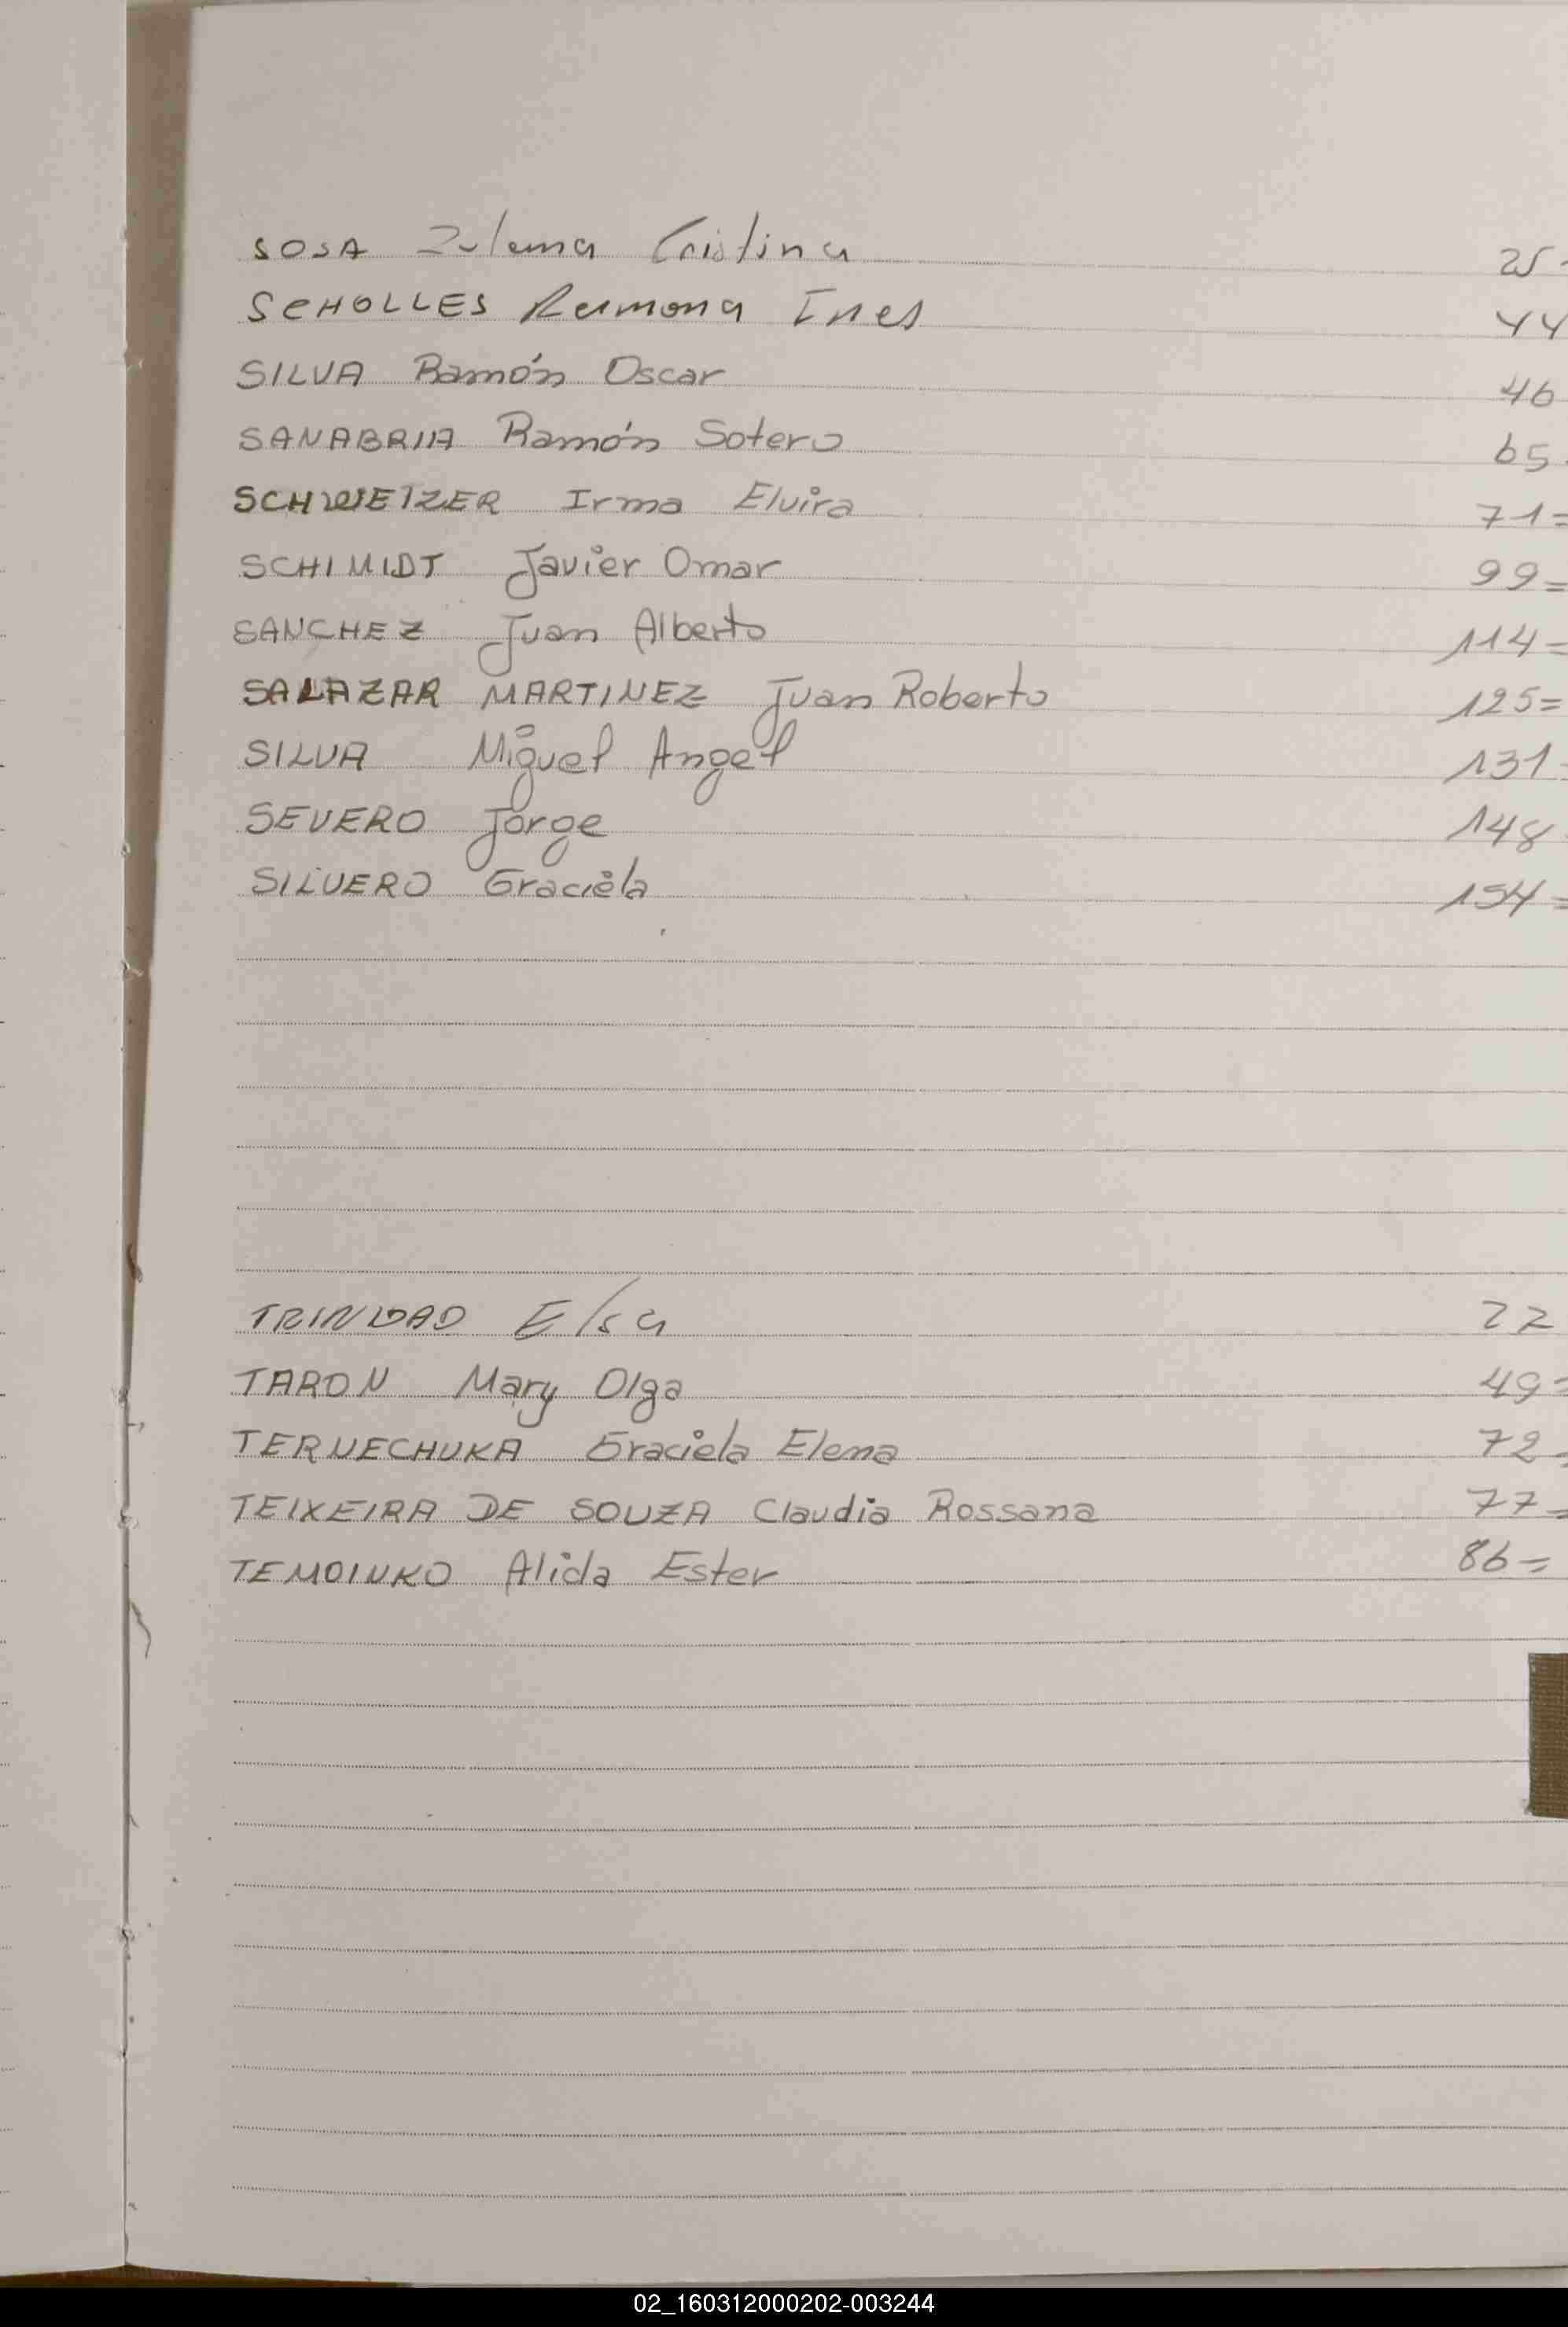 SOSA Zulema Cristina 25-
SCHOLLES Ramona Ines 44
SILVA Ramón Oscar 46
SANABRIA Ramón Sotero 65-
SCHWEIZER Irma Elvira 71=
SCHIMIDT Javier Omar 99=
SANCHEZ Juan Alberto 114=
SALAZAR MARTINEZ Juan Roberto 125=
SILVA Miguel Angel 131-
SEVERO Jorge 148-
SILVERO Graciela 154=
TRINIDAD Elsa 22
TARON Mary Olga 49=
TERNECHUKA Graciela Elena 72=
TEIXEIRA DE SOUZA Claudia Rossana 77=
TEMOINKO Alida Ester 86=
02_160312000202-003244